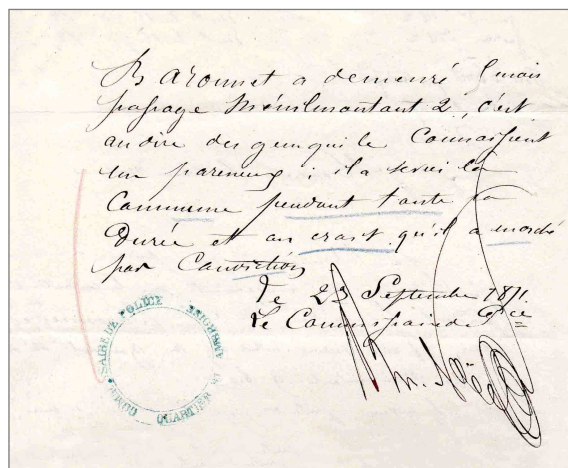 B Aronnet a demeuré 6 mois
passage Ménilmontant 2, c'est
au dire des gens qui le connaissent
un paresseux ; il a servi la
Commune pendant toute la
Durée et on croit qu'il a marché
par Conviction
Le 23 Septembre 1871.
Le Commissaire de Pce
COMMISSAIRE DE POLICE
QUARTIER St AMBROISE